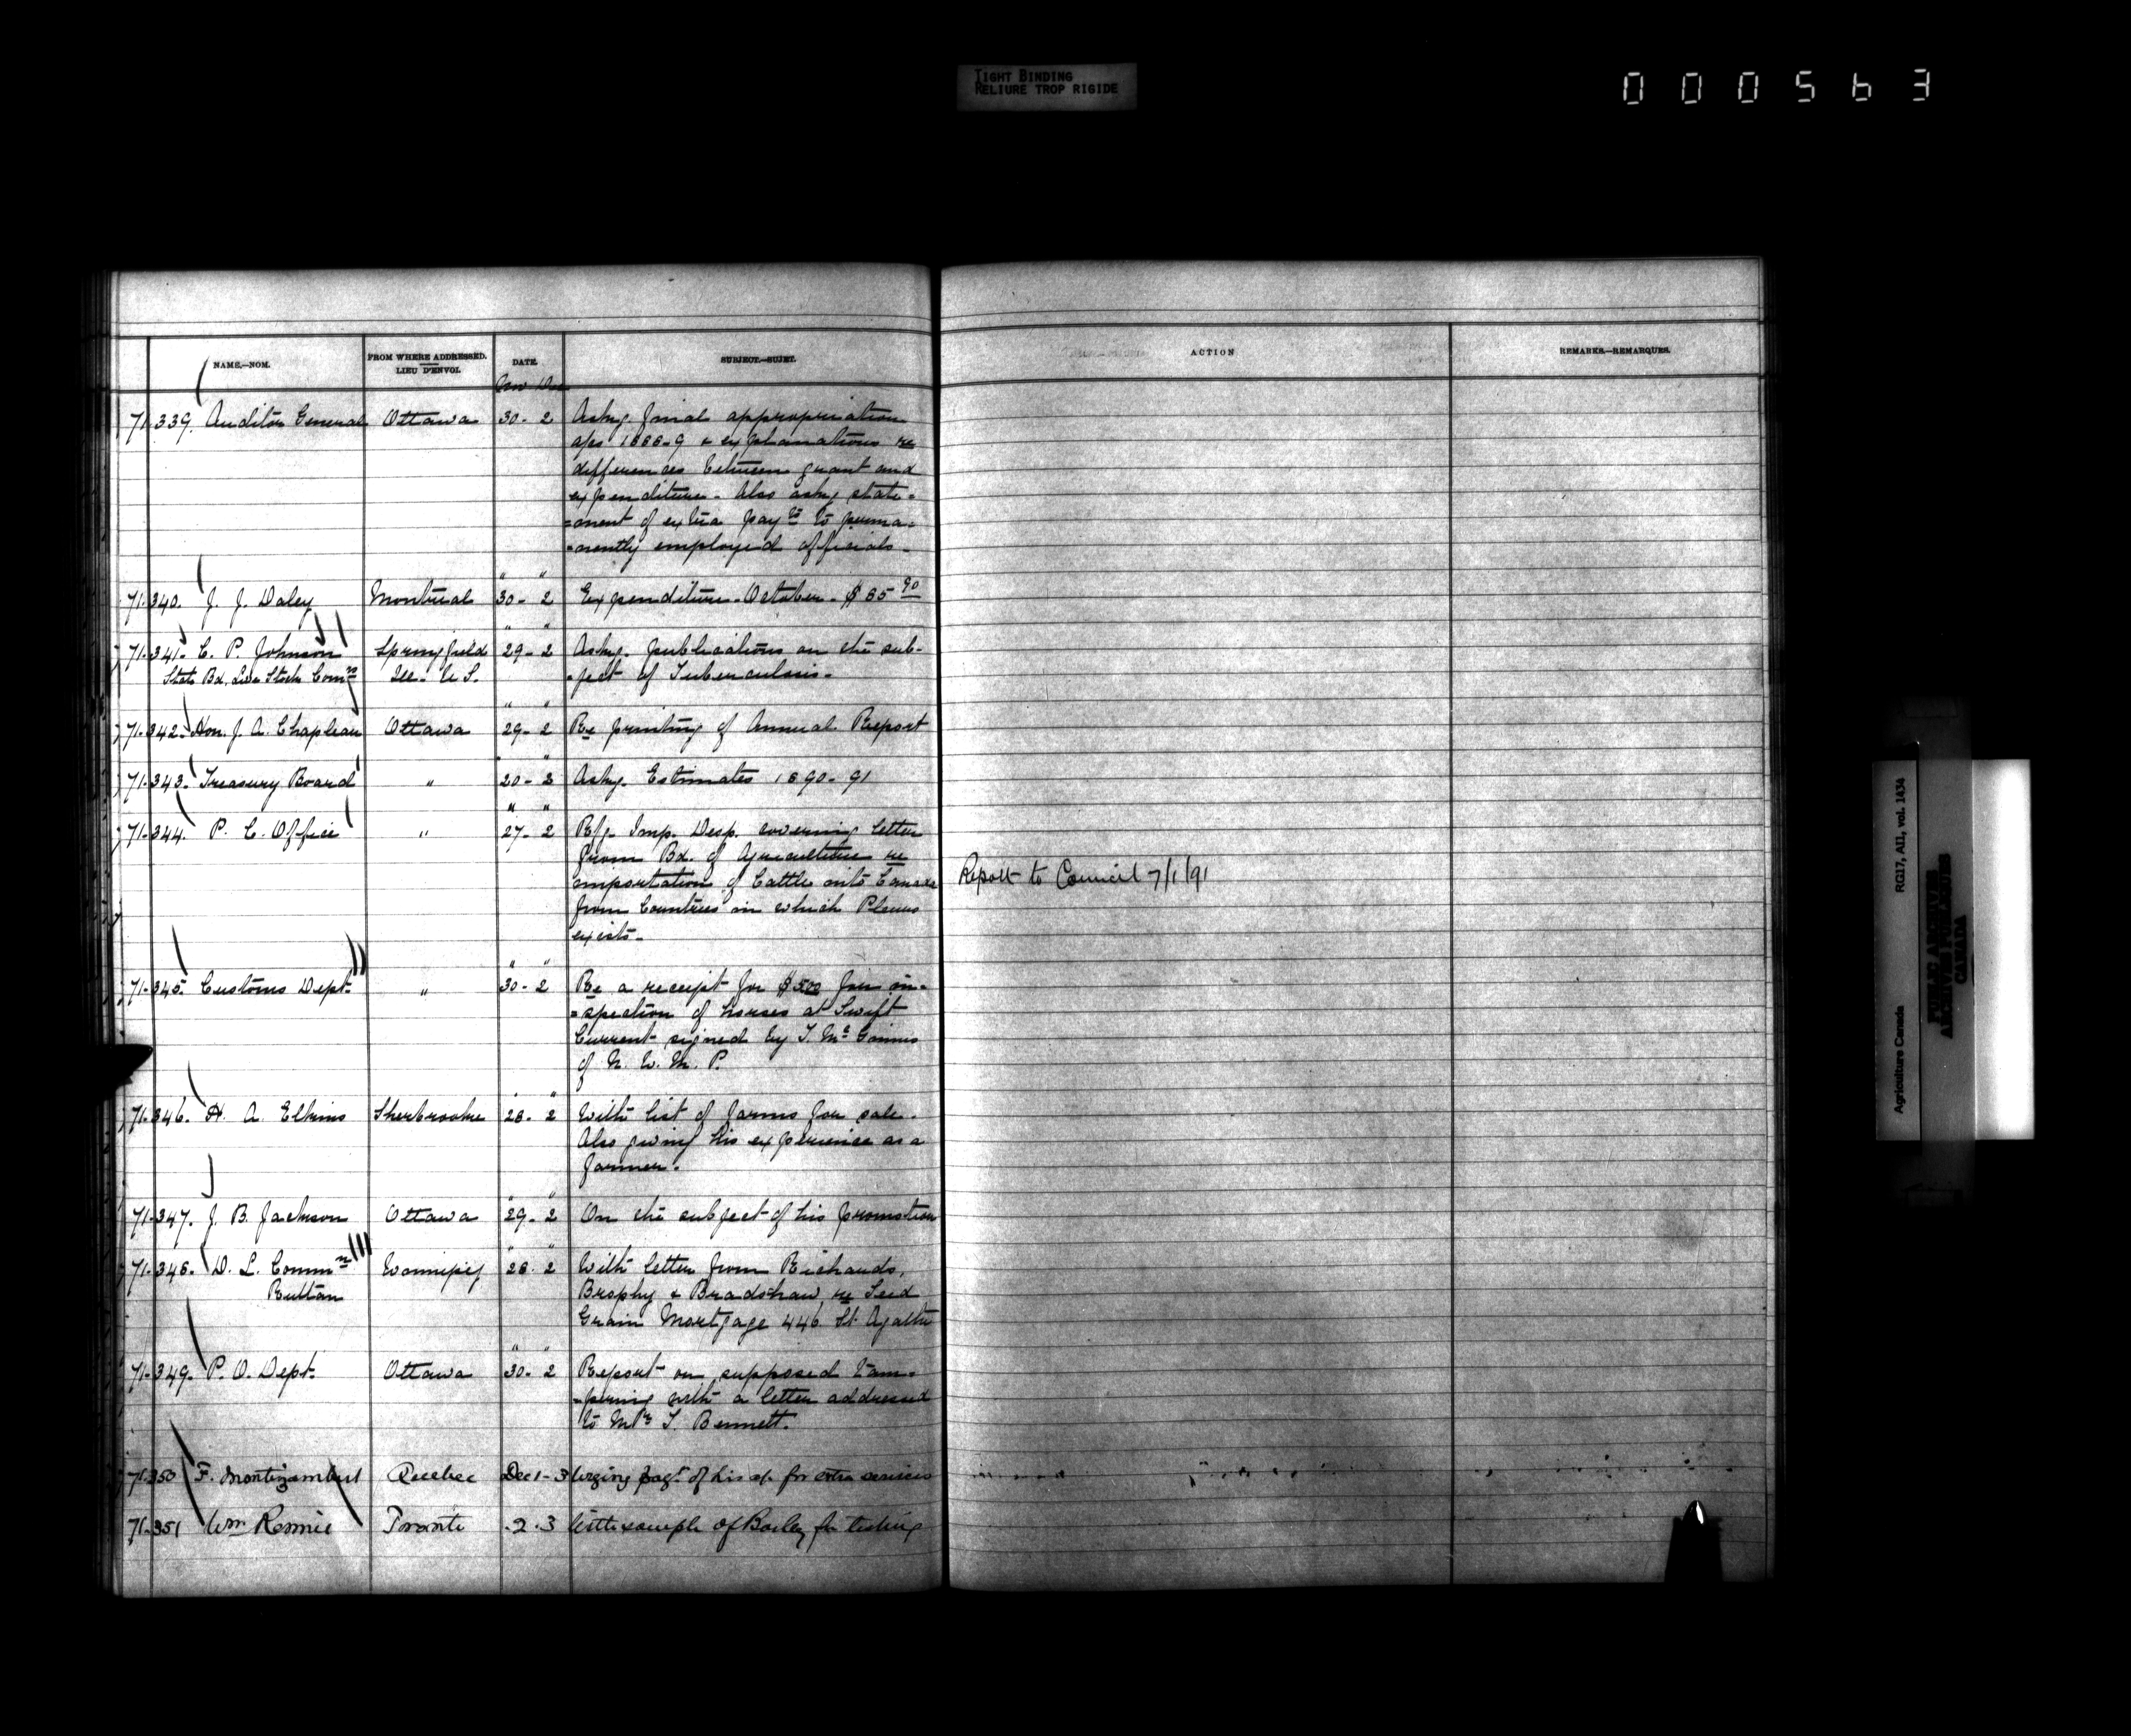 TIGHT BINDING
RELIURE TROP RIGIDE
000563
NAME.—NOM.
FROM WHERE ADDRESSED.
LIEU D'ENVOI.
DATE.
SUBJECT.—SUJET.
ACTION
REMARKS.—REMARQUES.
Nov Dec
71.339. Auditor General Ottawa 30 - 2 Askg. final appropriation
a/cs 1888-9 & explanations re
differences between grant and
expenditure - Also askg state=
=ment of extra paymts to perma=
=nently employed officials -
" "
71.340. J. J. Daley Montreal 30 - 2 Expenditure - October - $85 90
" "
71.341. C. P. Johnson Springfield 29 - 2 Askg. publications on the sub-
State Bd. Live Stock Commn Ill - U S. =ject of Tuberculosis -
" "
71.342. Hon. J. A. Chapleau Ottawa 29 - 2 Re printing of Annual Report
" "
71.343. Treasury Board " 20 - 2 Askg. Estimates 1890-91
" "
71.344. P. C. Office " 27 - 2 Rfg. Imp. Desp. covering letter
from Bd. of Agriculture re
importation of Cattle into Canada Report to Council 7/1/91
from Countries in which Pleuro
exists -
" "
71.345. Customs Dept. " 30 - 2 Re a receipt for $500 for in=
=spection of horses at Swift
Current signed by T. McGinnis
of N. W. M. P.
" "
71.346. H. A. Elkins Sherbrooke 28 - 2 With list of farms for sale.
Also giving his experience as a
farmer.
" "
71.347. J. B. Jackson Ottawa 29 - 2 On the subject of his promotion
" "
71.348. D. L. Commn Winnipeg 28 - 2 With letter from Richards,
Ruttan Brophy & Bradshaw re Seed
Grain Mortgage 446 St. Agathe
" "
71.349. P. O. Dept. Ottawa 30 - 2 Report on supposed tam=
=pering with a letter addressed
to Mrs T. Bennett.
71.350 F. Montizambert Quebec Dec 1 - 3 Urging paymt of his a/c for extra services
71.351 Wm Rennie Toronto 2 - 3 With sample of Barley for testing
Agriculture Canada RG17, AI1, vol. 1434
PUBLIC ARCHIVES
ARCHIVES PUBLIQUES
CANADA